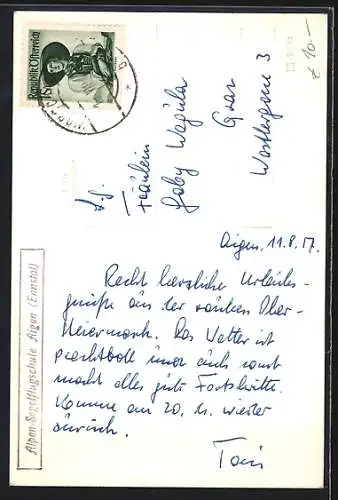 Republik Österreich
€ 10.-
Fräulein
Gaby
Graz
3
Aigen, 11.8.57.
Recht herzliche Urlaubs-
grüße aus der schönen Ober-
steiermark. Das Wetter ist
prachtvoll und auch sonst
macht alles gute Fortschritte.
Komme am 20. wieder
zurück.
Toni
Alpen-Segelflugschule Aigen (Ennstal)